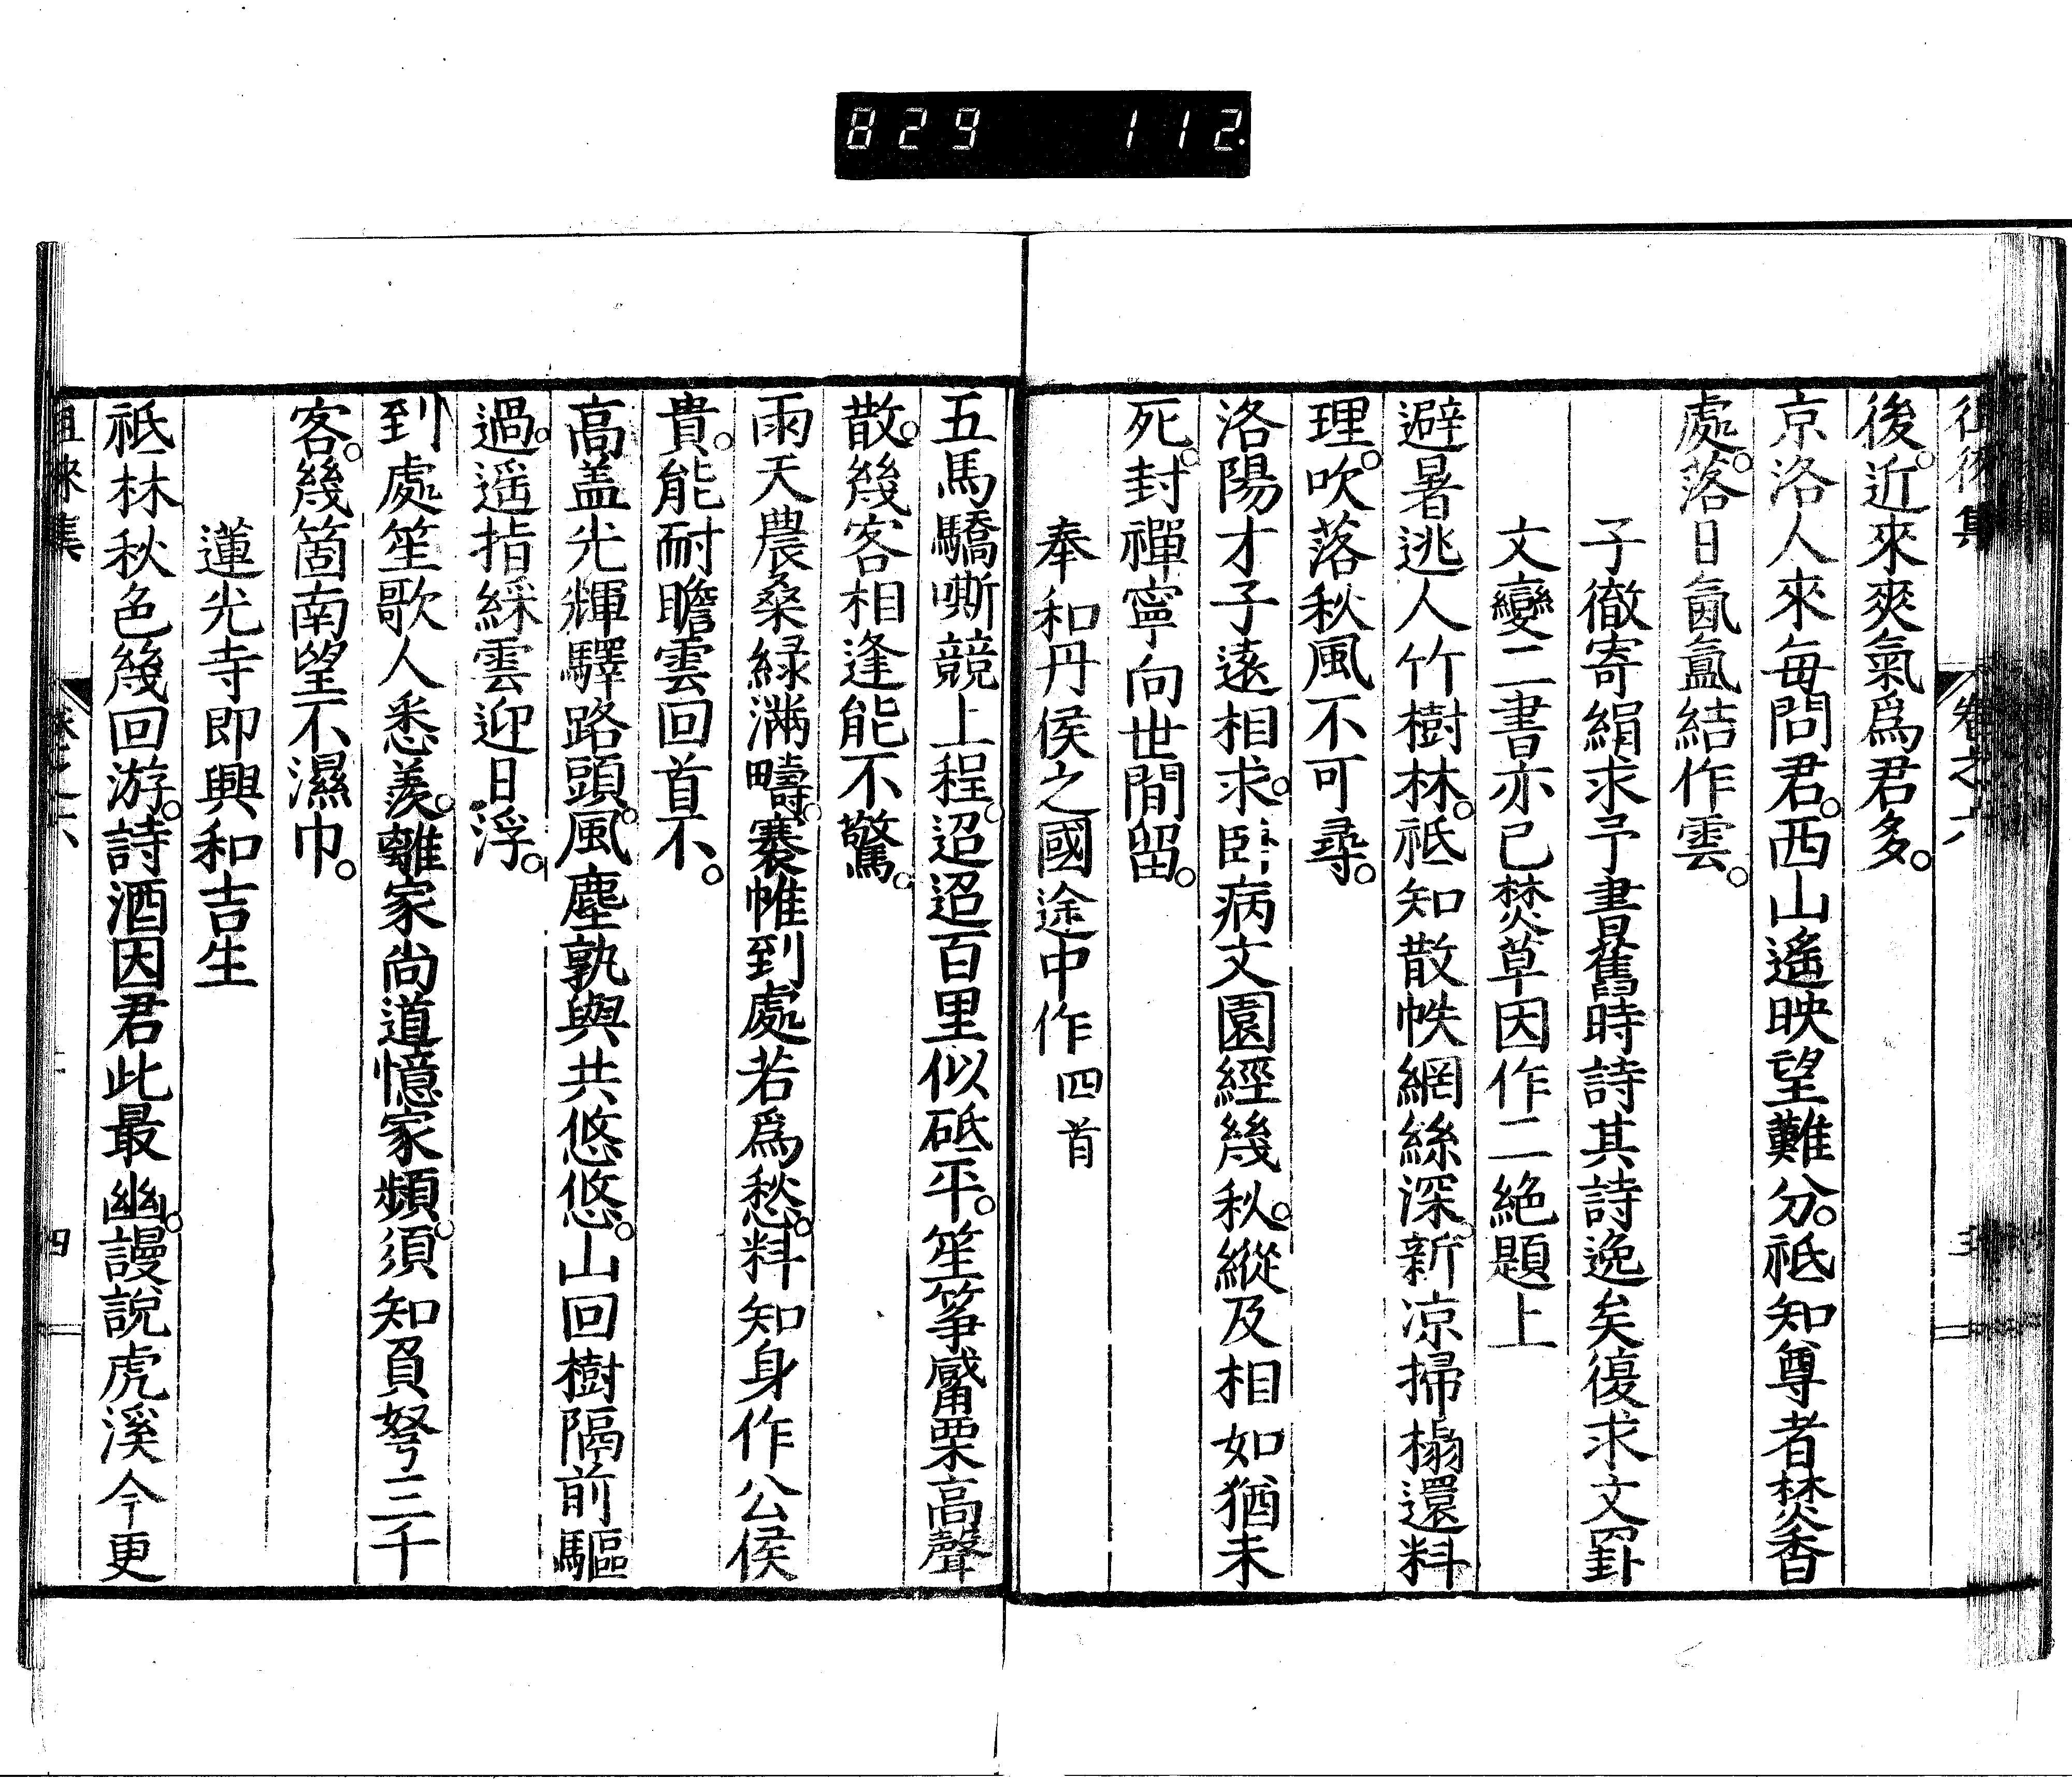 829 112.
後。近來爽氣爲君多。
京洛人來每問君。西山遙映望難分。祗知尊者焚香
處。落日氤氳結作雲。
子徹寄絹求予書舊時詩其詩逸矣復求文罫
文變二書亦已焚草因作二絶題上
避暑逃人竹樹林。祗知散帙網絲深。新凉掃榻還料
理。吹落秋風不可尋。
洛陽才子遠相求。臥病文園經幾秋。縱及相如猶未
死。封禪寧向世間留。
奉和丹侯之國途中作四首
五馬驕嘶競上程。迢迢百里似砥平。笙箏觱栗高聲
散。幾客相逢能不驚。
雨天農桑緑滿疇。褰帷到處若爲愁。料知身作公侯
貴。能耐瞻雲回首不。
高盖光輝驛路頭。風塵孰與共悠悠。山回樹隔前驅
過。遥指綵雲迎日浮。
到處笙歌人悉羨。離家尚道憶家頻。須知負弩三千
客。幾箇南望不濕巾。
蓮光寺即興和吉生
祗林秋色幾回游。詩酒因君此最幽。謾說虎溪今更